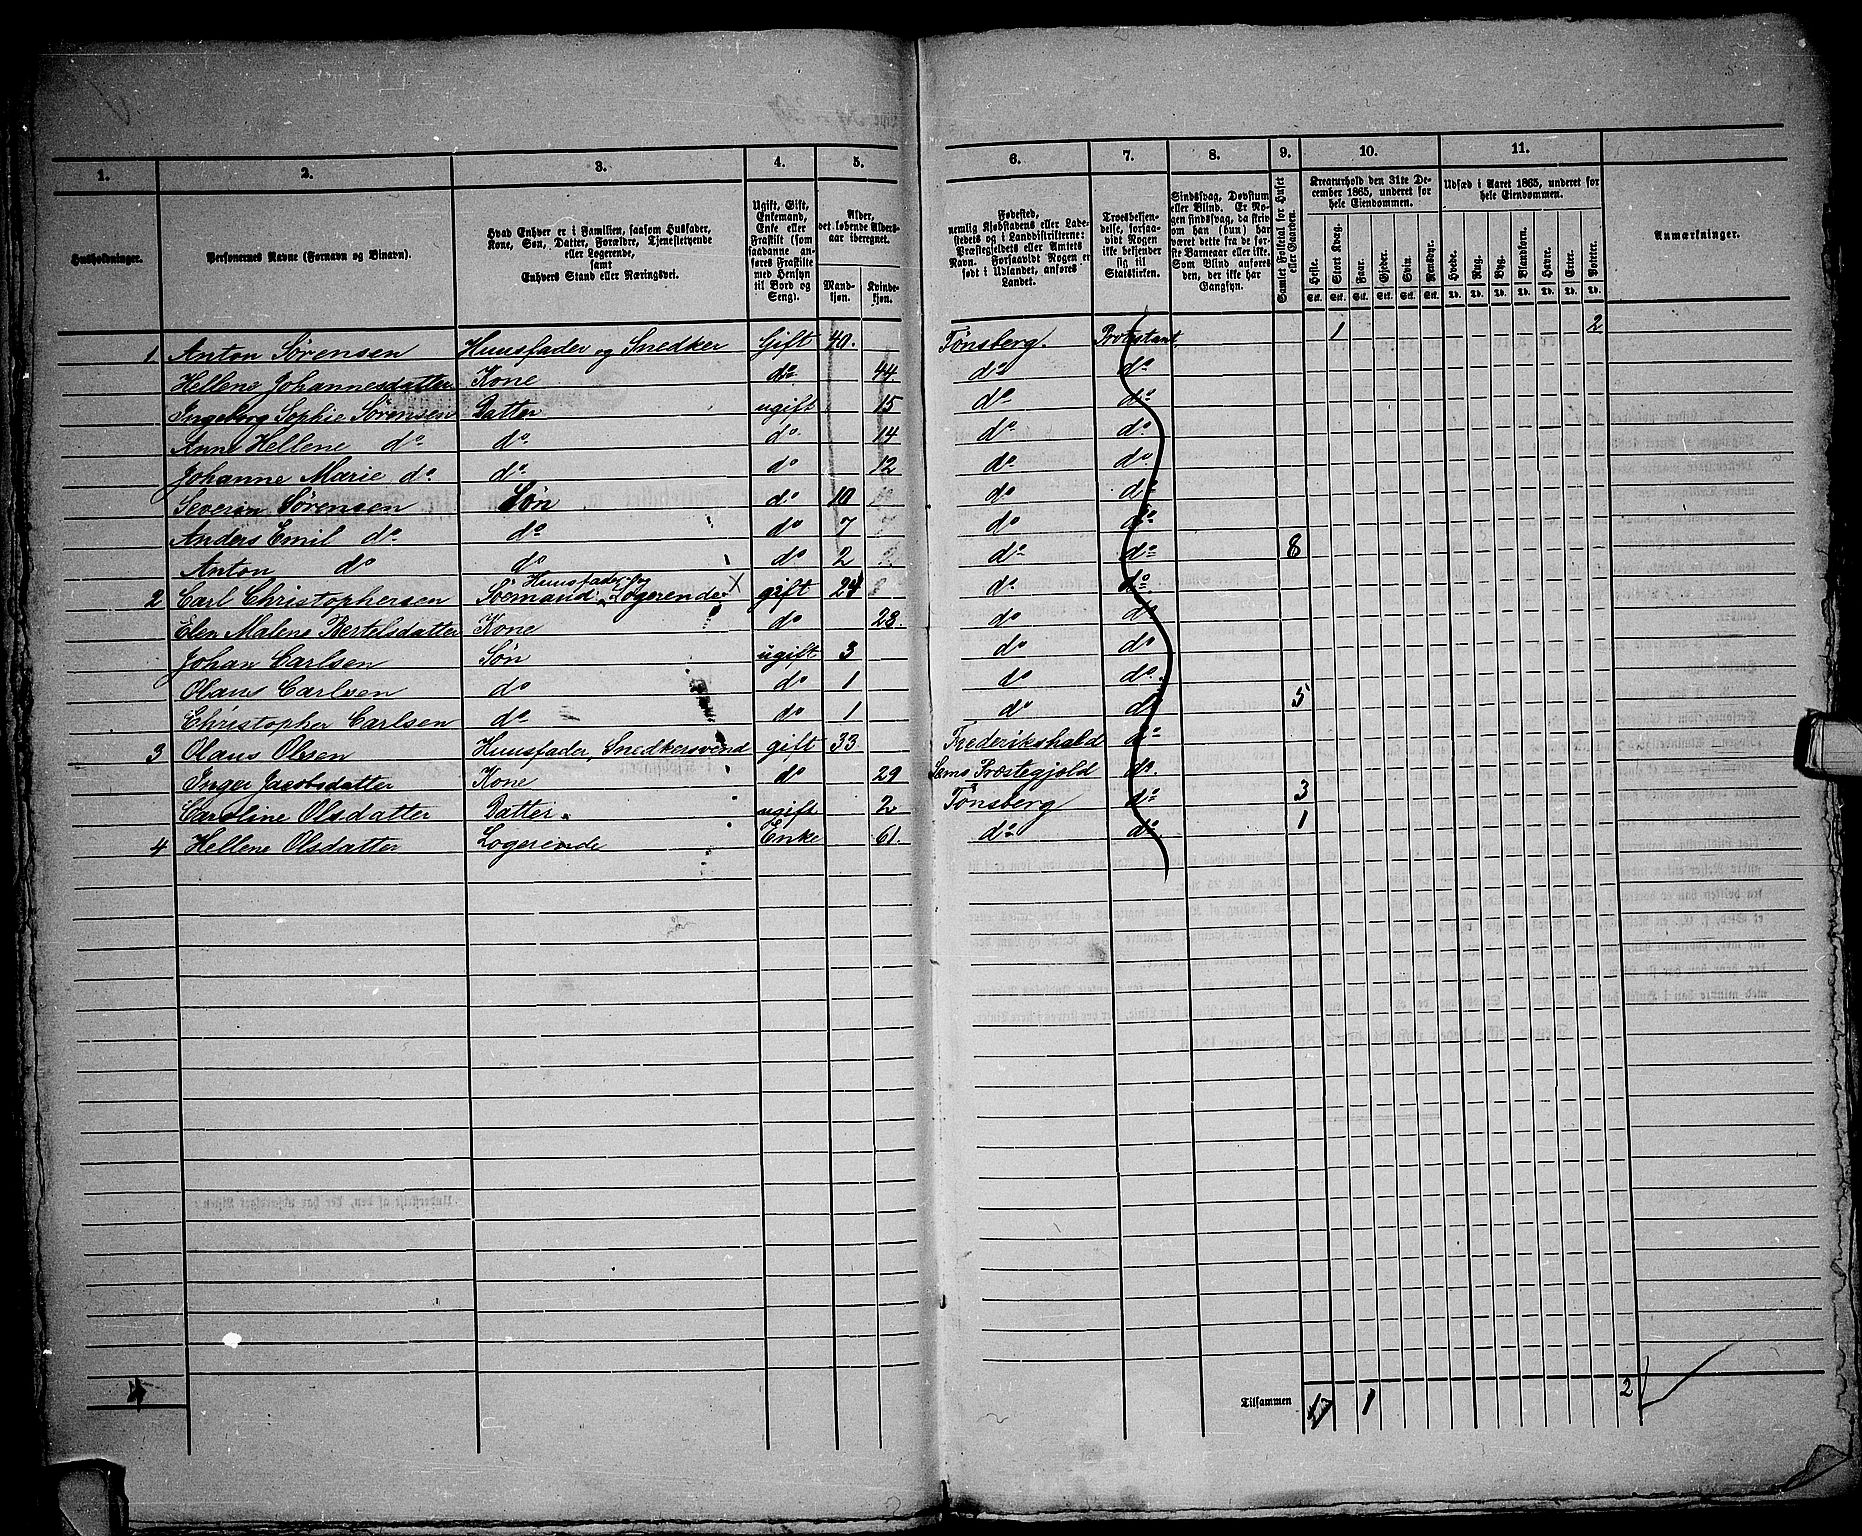 1. 2. 3. 4. 5. 6. 7. 8. 9. 10. 11.
Husholdninger.
Personernes Navne (Fornavn og Binavn).
Hvad Enhver er i Familien, saasom Husfader,
Kone, Søn, Datter, Forældre, Tjenestetyende
eller Logerende,
samt
Enhvers Stand eller Næringsvei.
Ugift, Gift,
Enkemand,
Enke eller
Fraskilt (som
saadanne an-
føres Fraskilte
med Hensyn
til Bord og
Seng).
Alder,
det løbende Alders-
aar iberegnet.
Mand-
kjøn.
Kvinde-
kjøn.
Fødested,
nemlig Kjøbstadens eller Lade-
stedets og i Landdistrikterne:
Præstegjeldets eller Amtets
Navn. Forsaavidt Nogen er
født i Udlandet, anføres
Landet.
Troesbekjen-
delse, forsaa-
vidt Nogen
ikke bekjender
sig til
Statskirken.
Sindssvag, Døvstum
eller Blind. Er No-
gen sindssvag, da skriv
om han (hun) har
været dette fra de før-
ste Barneaar eller ikke.
Som Blind anføres
den, der ikke har
Gangsyn.
Samlet Folketal for Huset
eller Gaarden.
Kreaturhold den 31te De-
cember 1865, underet for
hele Eiendommen.
Heste. Stort Kvæg. Faar. Gjeder. Svin. Rensdyr.
Stk. Stk. Stk. Stk. Stk. Stk.
Udsæd i Aaret 1865, underet for
hele Eiendommen.
Hvede. Rug. Byg. Blandkorn. Havre. Erter. Poteter.
Td. Td. Td. Td. Td. Td. Td.
Anmærkninger.
1 Anton Sørensen Huusfader og Snedker Gift 40. Tønsberg. Protestant 1 2
Hellene Johannesdatter Kone do. 44. do do
Ingeborg Sophie Sørensen Datter ugift 15 do. do
Anne Hellene do do. do. 14 do. do.
Johanne Marie do. do. do 12 do. do.
Severin Sørensen Søn do 10 do do
Anders Emil do. do do 7 do do
Anton do do do 2 do. do 8
2 Carl Christophersen Sømand Huusfader og Logerende X gift 24 do. do
Elen Malene Bertelsdatter Kone do 23. do do
Johan Carlsen Søn ugift 3 do do
Olaus Carlsen do do 1 do do.
Christopher Carlsen do. do 1 do do 5
3 Olaus Olsen Huusfader, Snedkersvend gift 33 Frederikshald do
Inger Jacobsdatter Kone do 29 Sems Præstegjeld do.
Caroline Olsdatter Datter. ugift 2 Tønsberg do 3
4 Hellene Olsdatter Logerende Enke 61. do do. 1
4
Tilsammen 17 1 2